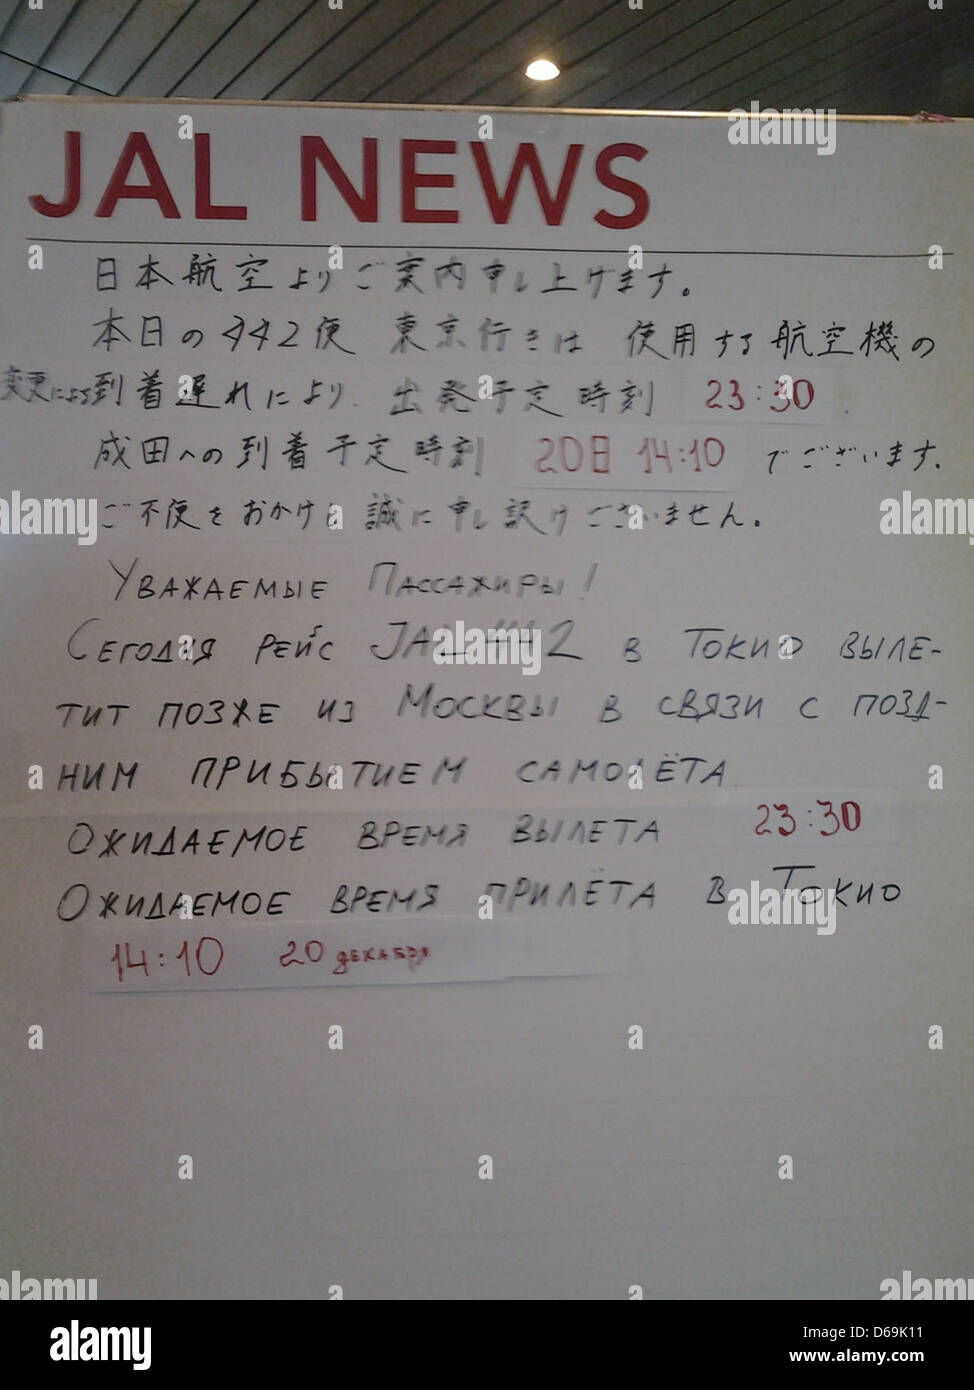 JAL NEWS
日本航空よりご案内申し上げます。
本日の442便 東京行きは 使用する航空機の
変更による到着遅れにより、出発予定時刻 23:30
成田への到着予定時刻 20日 14:10 でございます。
ご不便をおかけし誠に申し訳けございません。
Уважаемые Пассажиры!
Сегодня рейс JAL 442 в Токио выле-
тит позже из Москвы в связи с позд-
ним прибытием самолёта
Ожидаемое время вылета 23:30
Ожидаемое время прилёта в Токио
14:10 20 декабря
alamy
Image ID: D69K11
www.alamy.com